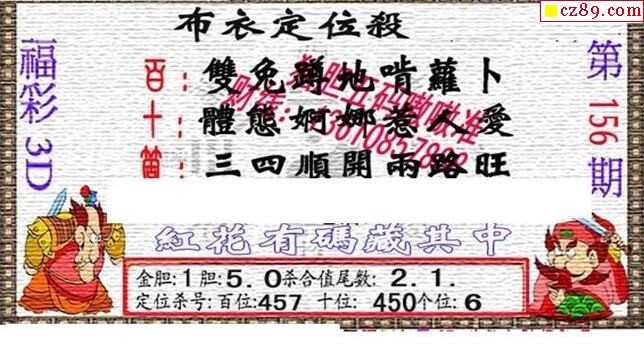 cz89.com
布衣定位殺
福彩3D
第156期
百：雙兔蹲地啃蘿卜
十：體態婀娜惹人愛
個：三四順開兩路旺
紅花有碼藏其中
金胆:1胆:5.0杀合值尾数:2.1.
定位杀号:百位:457 十位:450个位:6